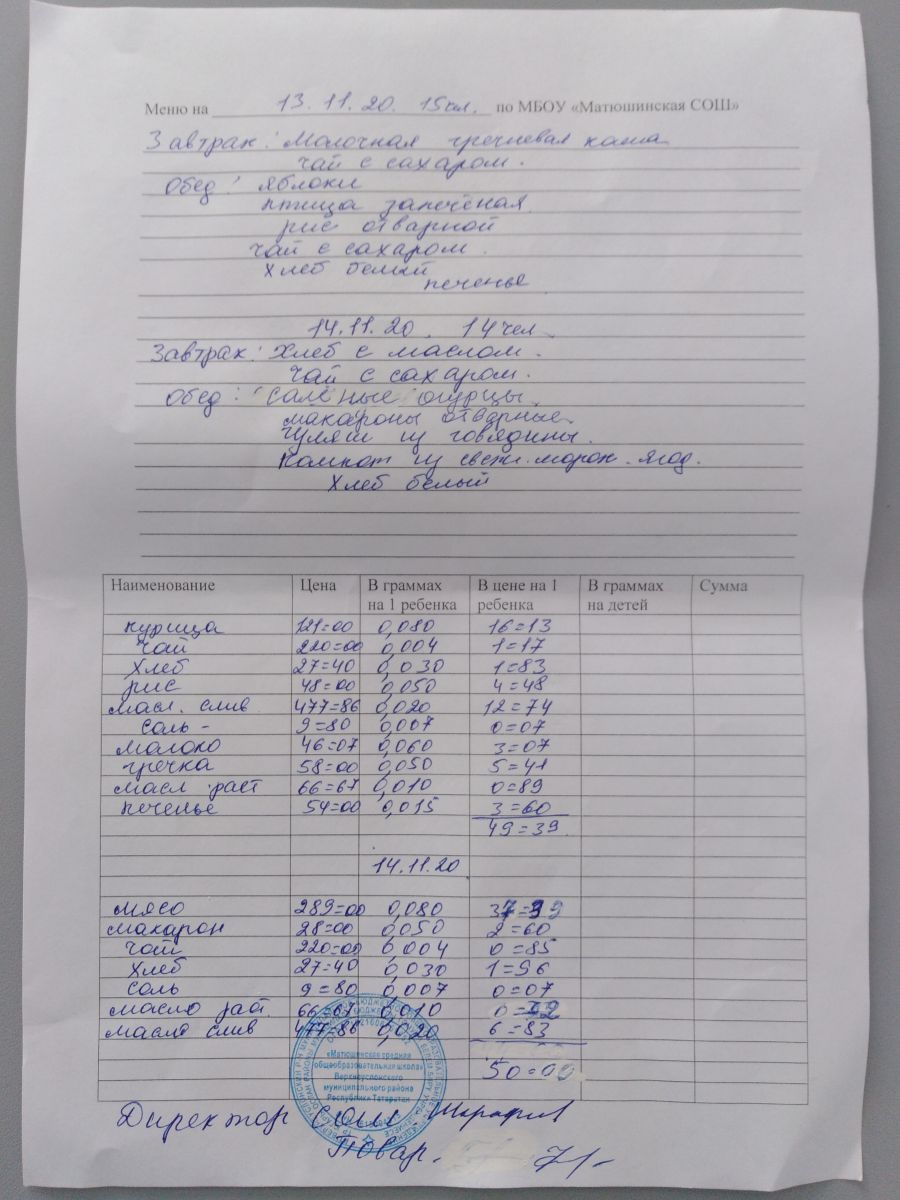 Меню на 13.11.20. 15 чел. по МБОУ «Матюшинская СОШ»
Завтрак: Молочная гречневая каша
чай с сахаром.
Обед: яблоки
птица запечёная
рис отварной
чай с сахаром.
хлеб белый
печенье
14.11.20 14 чел
Завтрак: Хлеб с маслом.
чай с сахаром.
Обед: Салёные огурцы
макароны отварные
гуляш из говядины.
Компот из свежи. морож. ягод.
Хлеб белый
Наименование Цена В граммах на 1 ребенка В цене на 1 ребенка В граммах на детей Сумма
курица 121=00 0,080 16=13
чай 220=00 0,004 1=17
хлеб 27=40 0,030 1=83
рис 48=00 0,050 4=48
масл. слив 477=86 0,020 12=74
соль - 9=80 0,007 0=07
молоко 46=07 0,060 3=07
гречка 58=00 0,050 5=41
масл раст 66=67 0,010 0=89
печенье 54=00 0,015 3=60
49=39
14.11.20
мясо 289=00 0,080
макарон 28=00 0,050 2=60
чай 220=00 0,004 0=85
хлеб 27=40 0,030 1=96
соль 9=80 0,007 0=07
масло 66=67 0,010
масло слив 477=86 0,020 6=83
50=
«Матюшинская средняя
общеобразовательная школа»
Верхнеуслонского
муниципального района
Республики Татарстан
Директор СОШ
Повар.